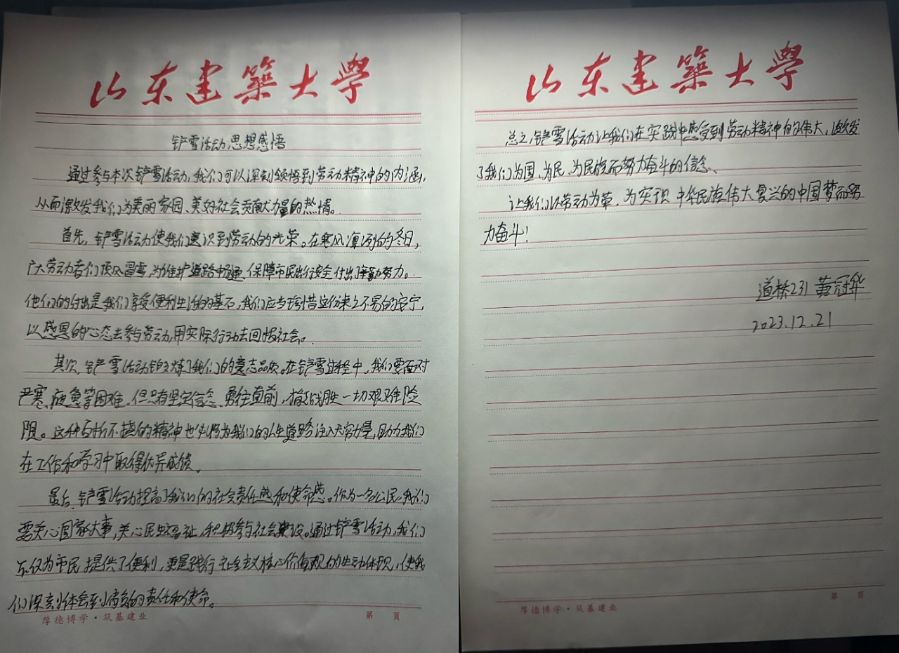 山东建築大學
铲雪活动思想感悟
通过参与本次铲雪活动,我们可以深刻领悟到劳动精神的内涵,
从而激发我们为美丽家园、美好社会贡献力量的热情。
首先,铲雪活动使我们意识到劳动的光荣。在寒风凛冽的冬日,
广大劳动者们顶风冒雪,为维护道路畅通、保障市民出行安全付出辛勤努力。
他们的付出是我们享受便利生活的基石,我们应当珍惜这份来之不易的安宁,
以感恩的心态去参与劳动,用实际行动去回报社会。
其次,铲雪活动锻炼了我们的意志品质。在铲雪过程中,我们要面对
严寒、疲惫等困难,但只有坚定信念、勇往直前,才能战胜一切艰难险
阻。这种百折不挠的精神也将为我们的人生道路注入力量,助力我们
在工作和学习中取得优异成绩。
最后,铲雪活动提高了我们的社会责任感和使命感。作为一名公民,我们
要关心国家大事,关心民生福祉,积极参与社会建设。通过铲雪活动,我们
不仅为市民提供了便利,更是践行社会主义核心价值观的生动体现,使我
们深刻体会到肩负的责任和使命。
厚德博学·筑基建业
第 頁
山东建築大學
总之,铲雪活动让我们在实践中感受到劳动精神的伟大,激发
了我们为国、为民、为民族而努力奋斗的信念。
让我们以劳动为荣,为实现中华民族伟大复兴的中国梦而努
力奋斗!
道桥231 黄冠华
2023.12.21
厚德博学·筑基建业
第 頁